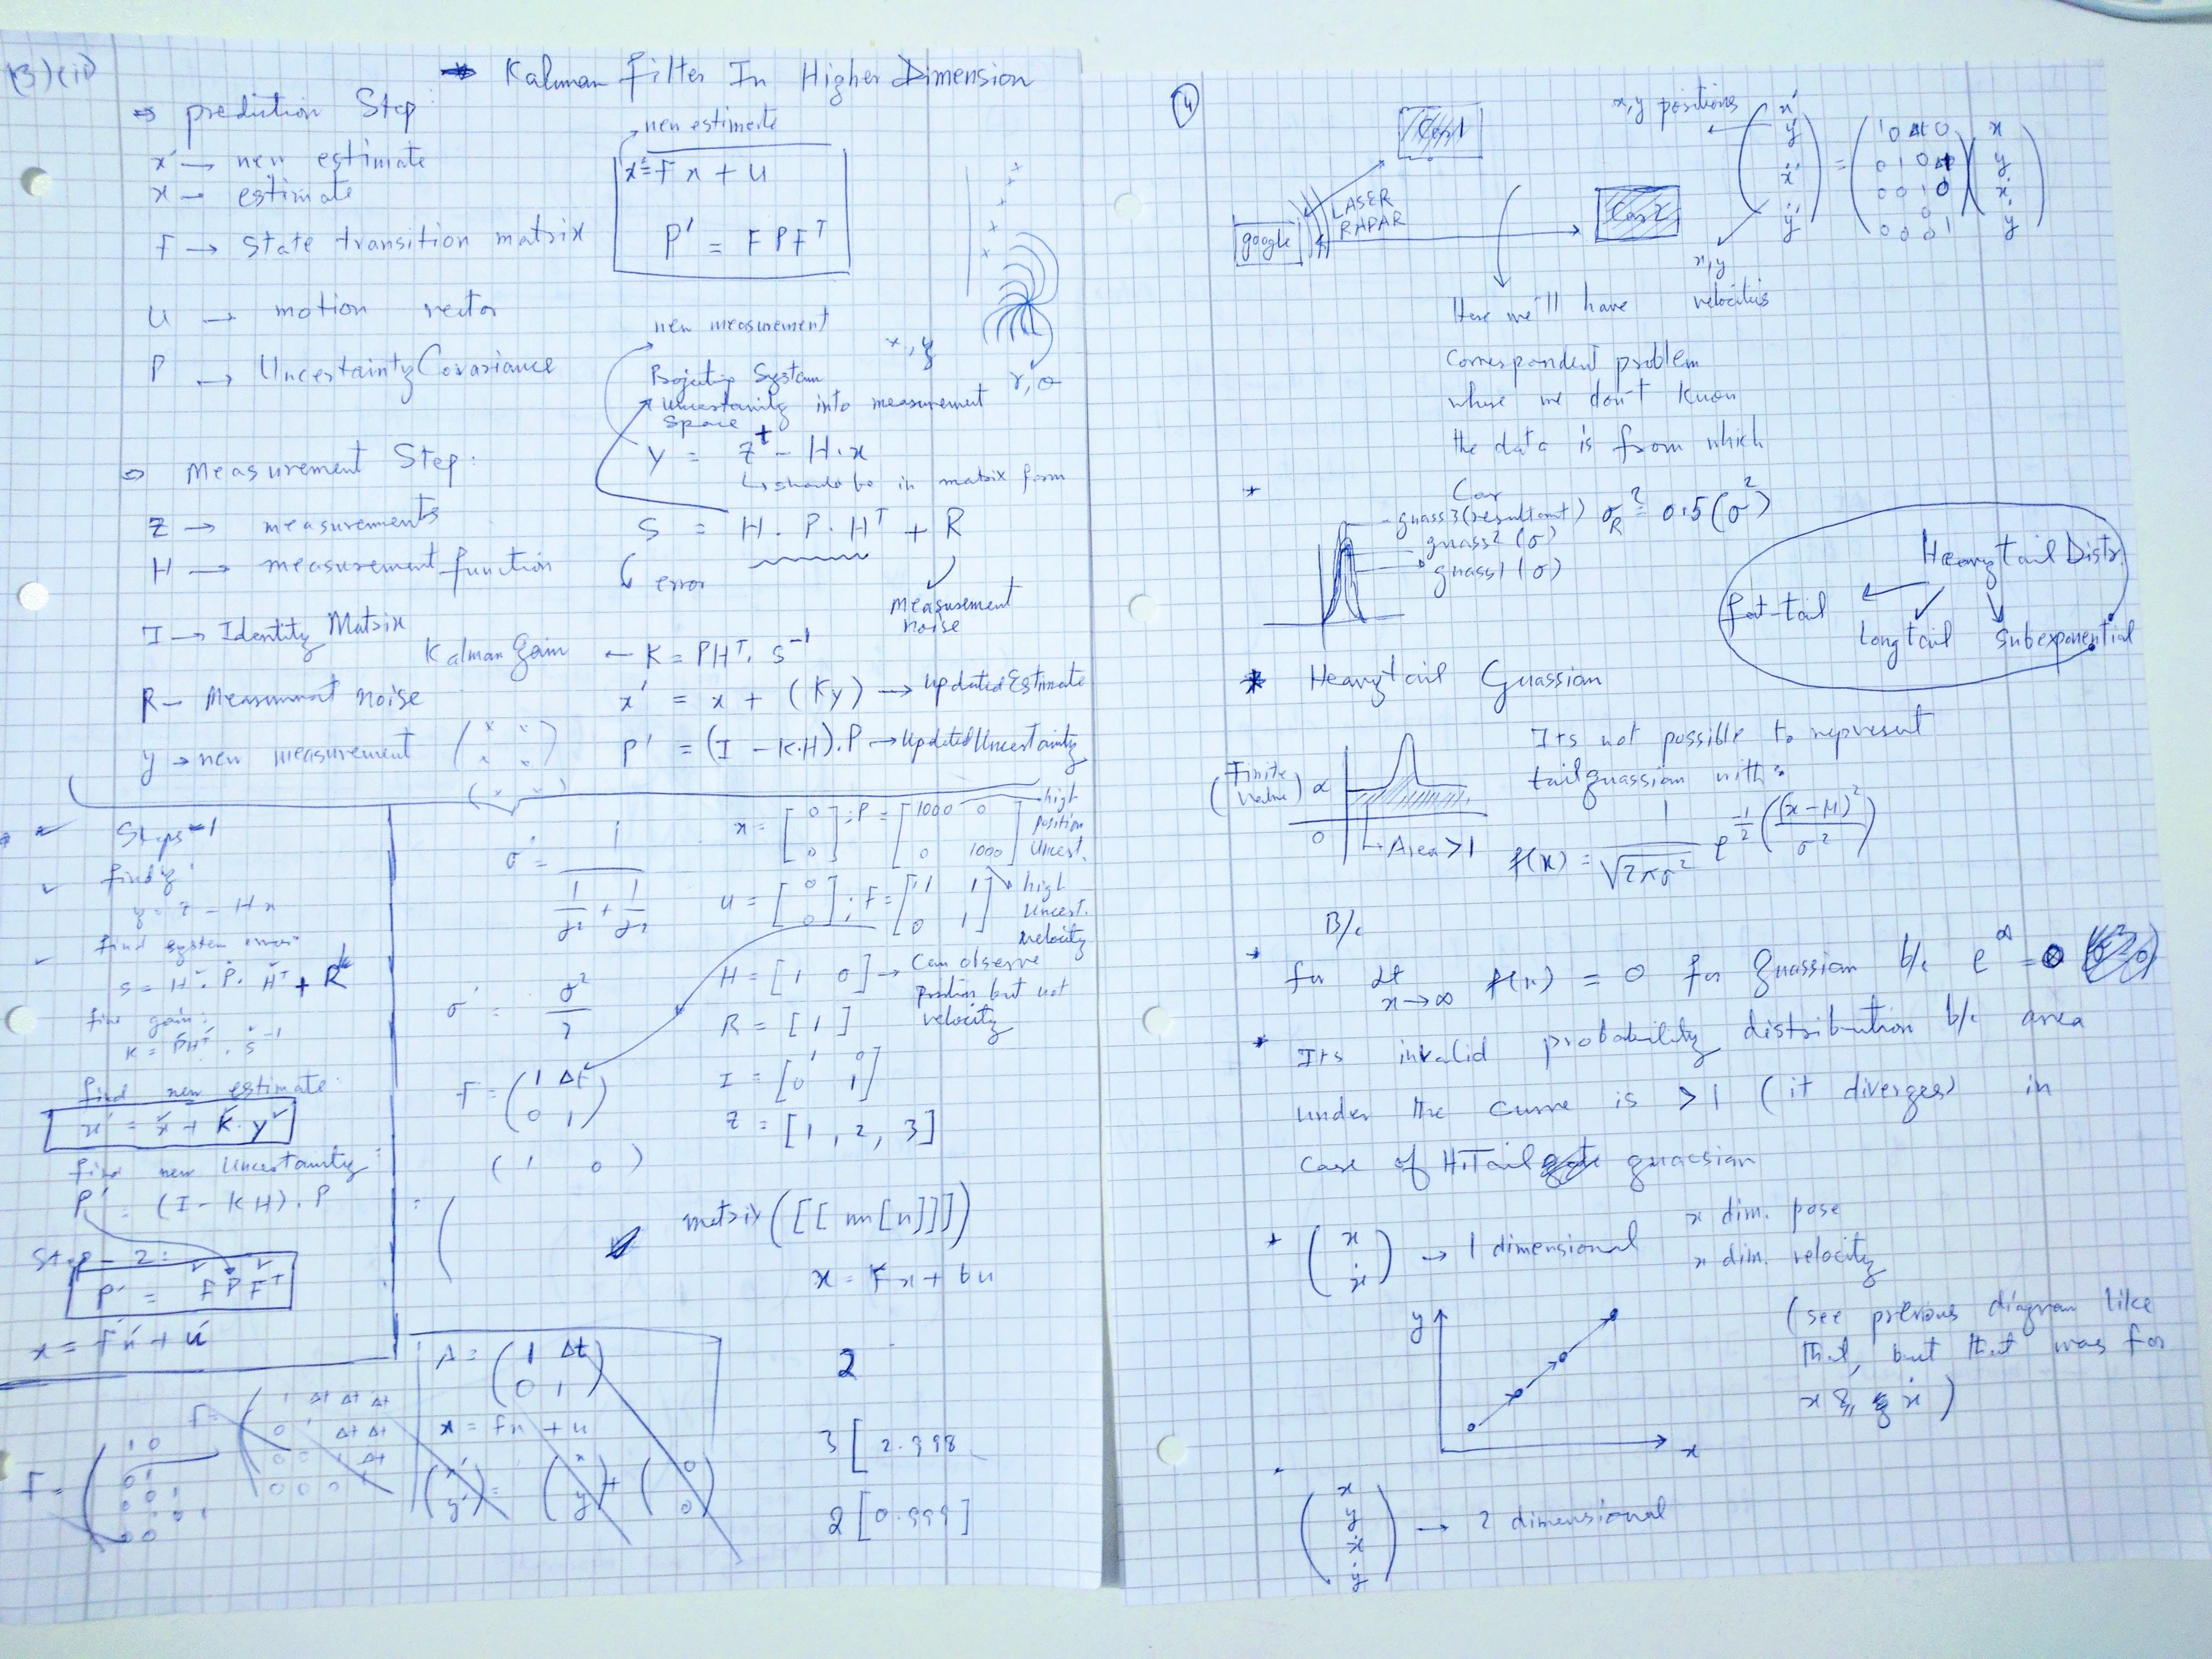 (3)(ii)
* Kalman Filter In Higher Dimension
⇒ prediction Step:
x' → new estimate
x → estimate
F → State transition matrix
U → motion vector
P → Uncertainty Covariance
new estimate
x' = Fx + u
P' = F P F^T
x, y
r, θ
⇒ Measurement Step:
Z → measurements
H → measurement function
I → Identity Matrix
R – Measurment noise
y → new measurement
new measurement
Projecting System
Uncertainity into measurement
Space
y = z^t - H.x
↳ should be in matrix form
S = H . P . H^T + R
error
measurement
noise
Kalman Gain ← K = PH^T. S^-1
x' = x + (Ky) → Updated Estimate
P' = (I - K.H).P → Updated Uncertainty
Steps-1
find y
y = z - Hx
find system error
S = H . P . H^T + R
find gain:
K = PH^T . S^-1
find new estimate:
x' = x + K.y
find new Uncertainty:
P' = (I - KH).P
Step-2:
P' = F P F^T
x = Fx + u
F = ( 1 Δt
0 1 )
( 1 0 )
x = [ 0 0 ] ; P = [ 1000 0
0 1000 ]
high
position
Uncest.
u = [ 0 0 ] ; F = [ 1 1
0 1 ]
high
Uncest.
velocity
H = [ 1 0 ] → Can observe
position but not
velocity
R = [ 1 ]
I = [ 1 0
0 1 ]
Z = [ 1, 2, 3 ]
x = Fx + bu
A = ( 1 Δt
0 1 )
x = Fx + u
( x' y' ) = ( x y ) + ( 0 0 )
2
3 [ 2.998
2 [ 0.999 ]
(4)
Car1
google
LASER
RADAR
Car2
x, y positions
( x' y' ẋ' ẏ' ) = ( 1 0 Δt 0
0 1 0 Δt
0 0 1 0
0 0 0 1 ) ( x y ẋ ẏ )
x, y
velocities
Here we'll have
Correspondent problem
where we don't know
the data is from which
Car
guass3 (resultant) σ_R^2 = 0.5(σ^2)
guass2 (σ)
guass1 (σ)
Heavytail Distr.
fat-tail
Longtail
Subexponential
* Heavytail Guassian
(Finite
value) α
0
↳ Area > 1
Its not possible to represent
tailguassian with:
f(x) = 1/√(2πσ^2) e^(-1/2 ((x-μ)^2/σ^2))
B/c
* for Lt x→∞ f(x) = 0 for Guassian b/c e^∞ = 0
* Its invalid probability distribution b/c area
under the curve is > 1 (it diverges) in
case of H.Tail guassian
* ( x ẋ ) → 1 dimensional
x dim. pose
x dim. velocity
y
x
(see previous diagram like
that, but that was for
x & ẋ)
( x y ẋ ẏ ) → 2 dimensional